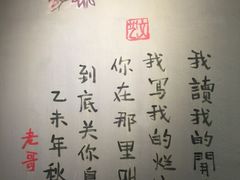 我讀我的開
我写我的烂
你在那里叫
到底关你
乙未年秋
老哥